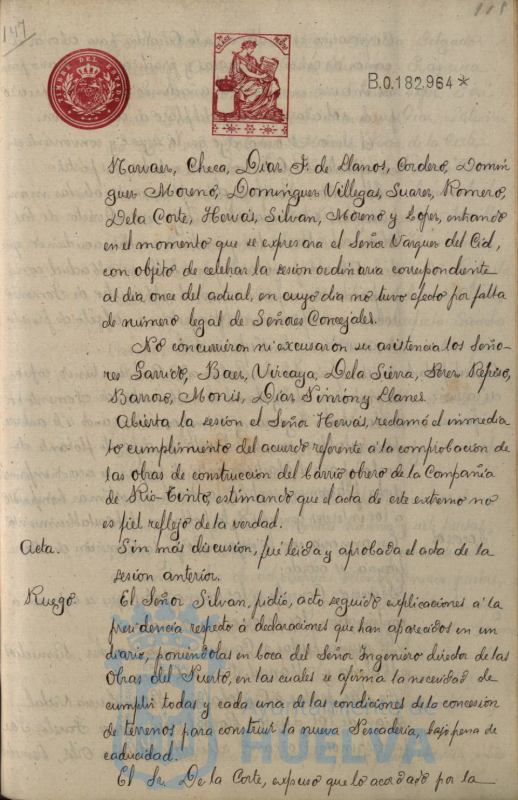 147
115
TIMBRE DEL ESTADO
B.0.182.964*
Narvaez, Checa, Diaz F. de Llanos, Cordero, Domin
guez Moreno, Dominguez Villegas, Suarez, Romero,
De la Corte, Hervás, Silvan, Moreno y Lopez, entrando
en el momento que se expresara el Señor Vazquez del Cid,
con objeto de celebrar la sesion ordinaria correspondiente
al dia once del actual, en cuyo dia no tuvo efecto por falta
de número legal de Señores Concejales.
No concurrieron ni excusaron su asistencia los Seño-
res Garrido, Baez, Vizcaya, De la Sierra, Perez Repiso,
Barroso, Monis, Diaz Pinzón y Llanes.
Abierta la sesion el Señor Hervás, reclamó el inmedia
to cumplimiento del acuerdo referente á la comprobación de
las obras de construccion del barrio obrero de la Compañia
de Rio-Tinto, estimando que el acta de este extremo no
es fiel reflejo de la verdad.
Acta. Sin más discusion, fué leida y aprobada el acta de la
sesion anterior.
Ruego El Señor Silvan, pidió, acto seguido explicaciones á la
presidencia respeto á declaraciones que han aparecidos en un
diario, poniendolas en boca del Señor Ingeniero director de las
Obras del Puerto, en las cuales se afirma la necesidad de
cumplir todas y cada una de las condiciones de la concesion
de terrenos para construir la nueva Pescaderia, bajo pena de
caducidad.
HUELVA
El Sr. De la Corte, expuso que lo acordado por la